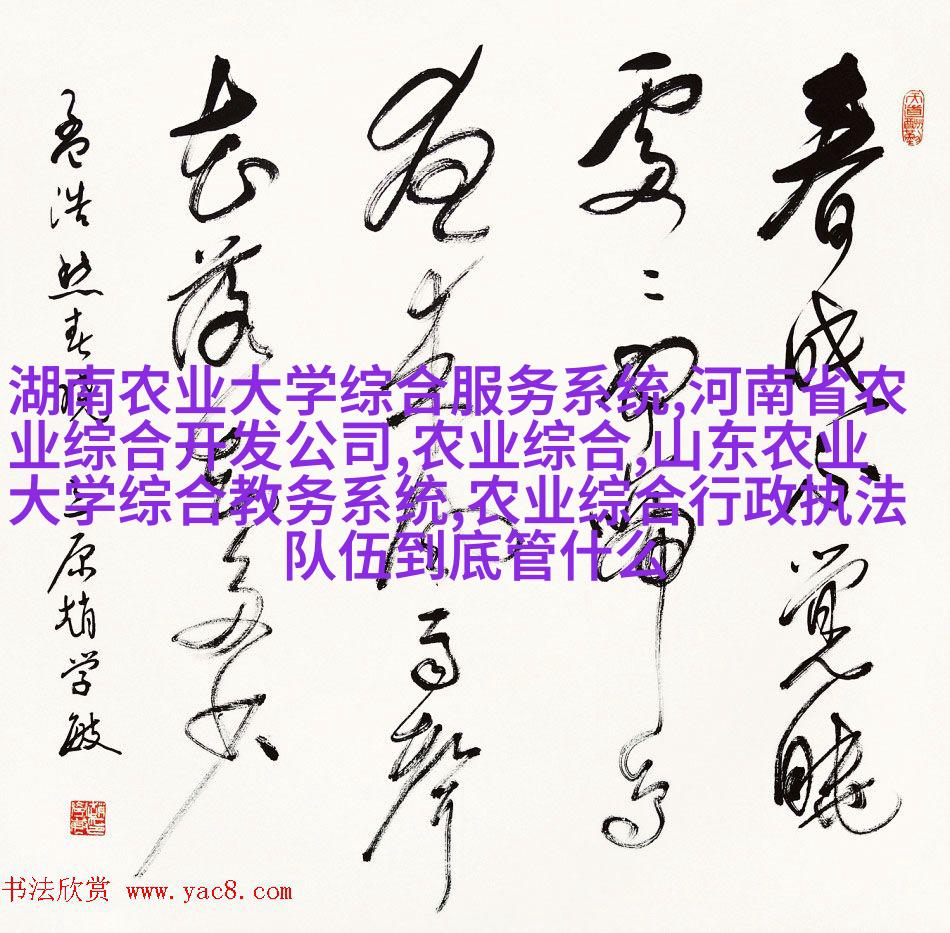 春眠不觉晓
处二闻啼鸟
夜来风雨声
花落知多少
孟浩然春晓 三原赵学敏
天道酬勤
湖南农业大学综合服务系统,河南省农
业综合开发公司,农业综合,山东农业
大学综合教务系统,农业综合行政执法
队伍到底管什么
书法欣赏 www.yac8.com